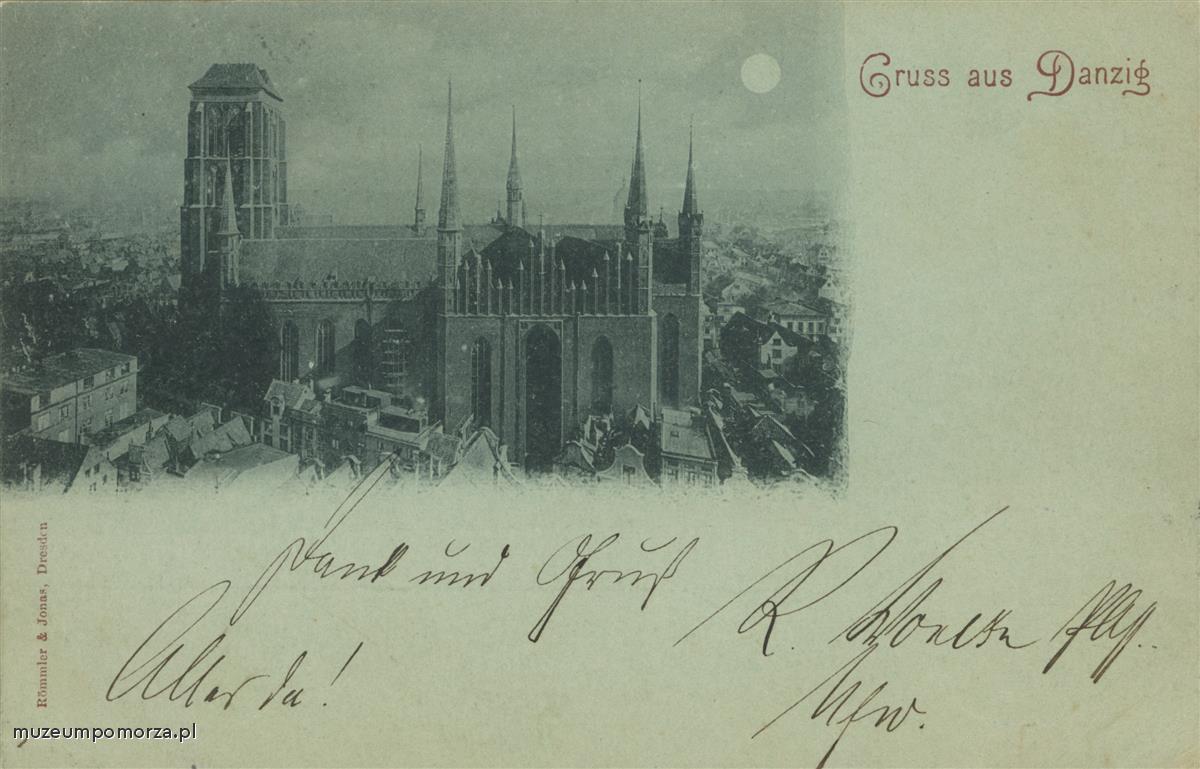 Gruss aus Danzig
Dank und Gruß
R.
Alles da!
Römmler & Jonas, Dresden
muzeumpomorza.pl